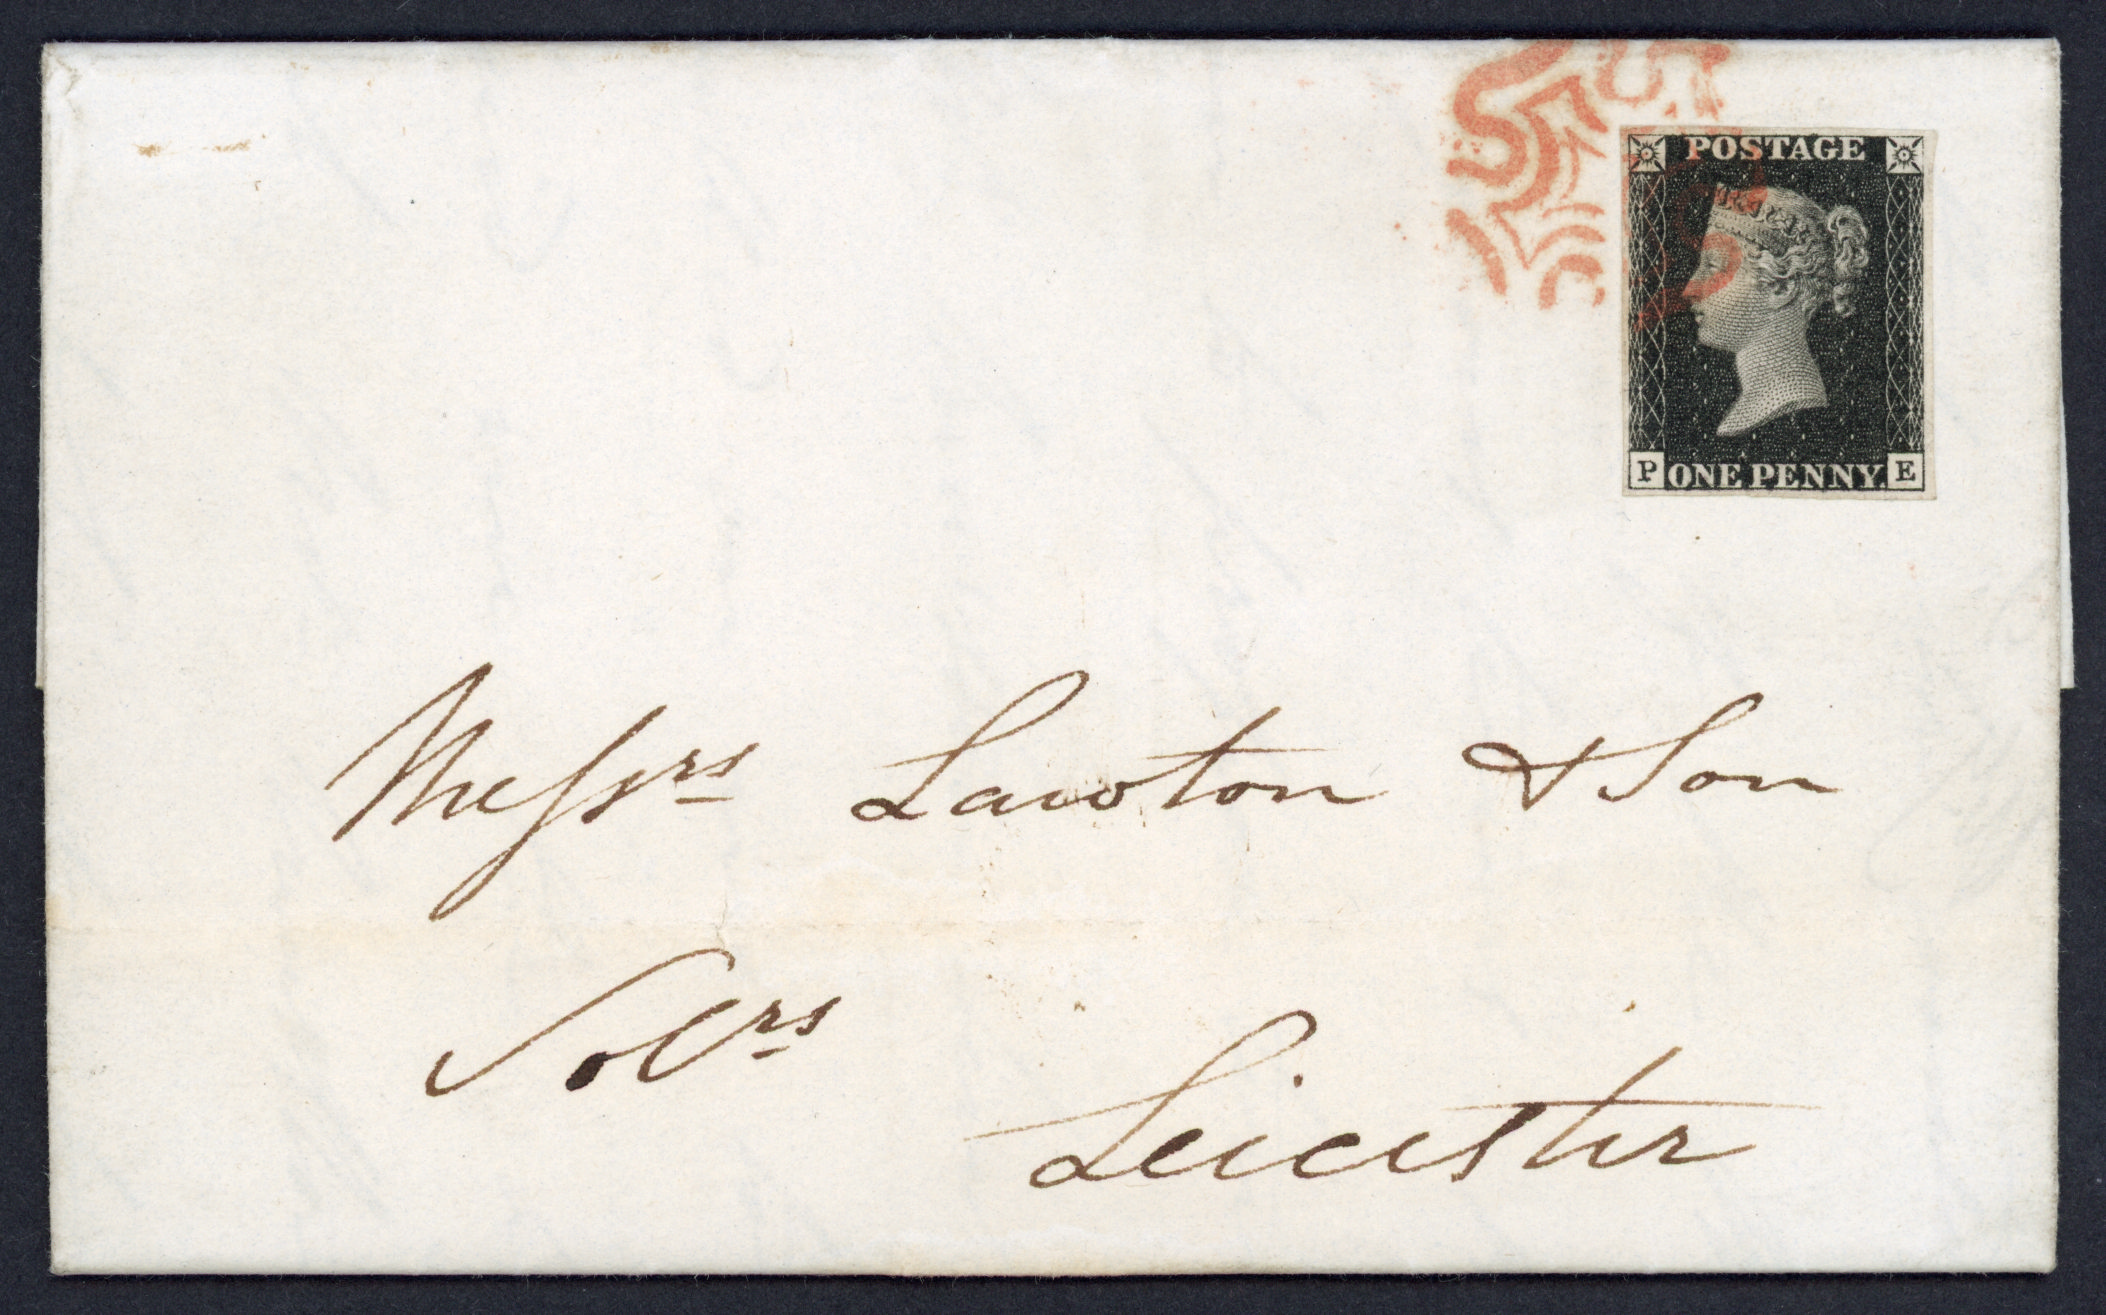 POSTAGE
P ONE PENNY. E
Messrs Lawton & Son
Solrs
Leicester